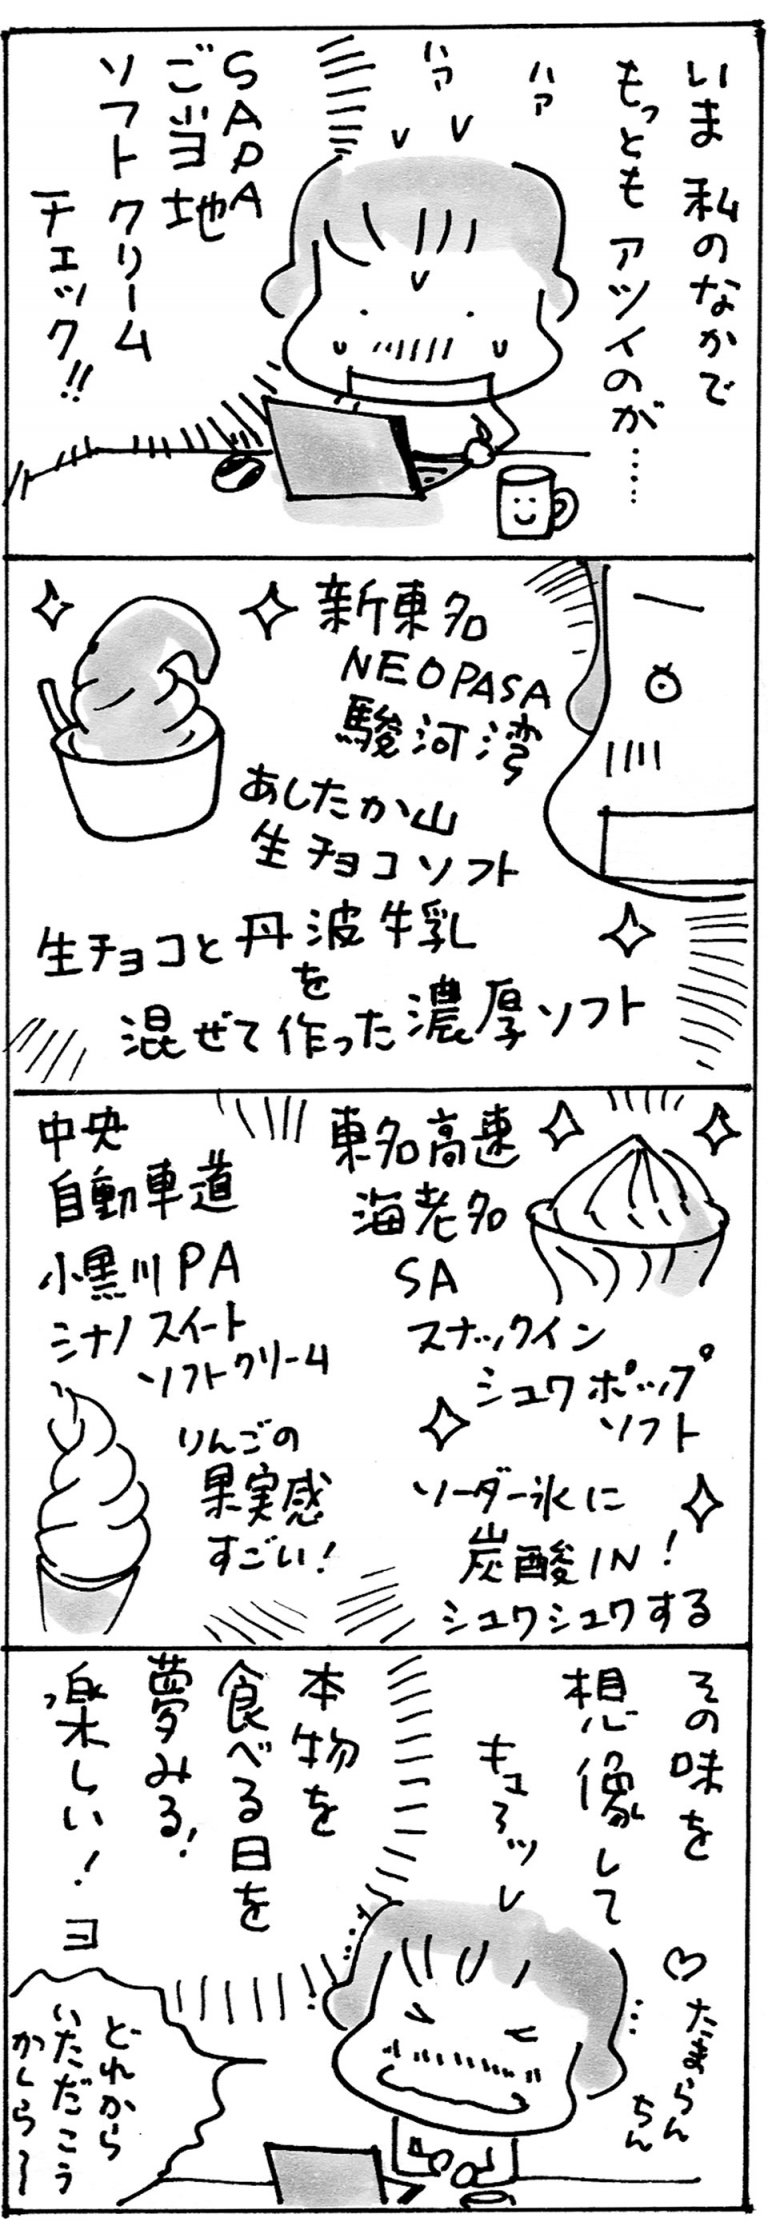 いま 私のなかで
もっとも アツイのが……
ハァ
ハァ
SAPA
ご当地
ソフトクリーム
チェック!!
新東名
NEOPASA
駿河湾
あしたか山
生チョコソフト
生チョコと丹波牛乳
を
混ぜて作った濃厚ソフト
東名高速
海老名
SA
スナックイン
シュワポップ
ソフト
ソーダー氷に
炭酸IN!
シュワシュワする
中央
自動車道
小黒川PA
シナノスイート
ソフトクリーム
りんごの
果実感
すごい!
その味を
想像して
キュアッ
本物を
食べる日を
夢みる!
楽しい! ヨ
♡たまらん
ちん
どれから
いただこう
かしら〜